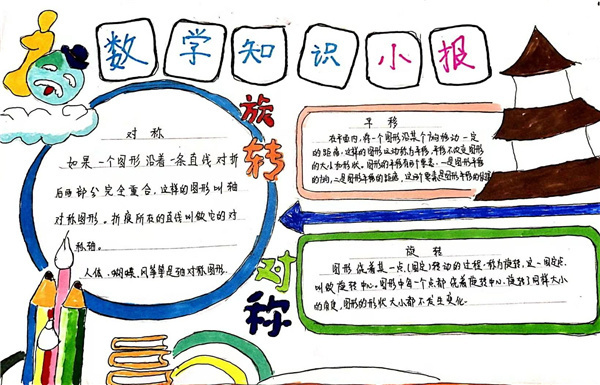 数学知识小报
对称
如果一个图形沿着一条直线对折
后两部分完全重合,这样的图形叫轴
对称图形。折痕所在的直线叫做它的对
称轴。
人体、蝴蝶、风筝等是轴对称图形.
旋转
对称
平移
在平面内,将一个图形沿某个方向移动一定
的距离,这样的图形运动称为平移,平移不改变图形
的大小和形状。图形的平移有两个要素:一是图形平移
的方向,二是图形平移的距离,这两个要素是图形平移的依据
旋转
图形绕着某一点(固定)转动的过程,称为旋转,这一固定点
叫做旋转中心。图形中每一个点都绕着旋转中心,旋转了同样大小
的角度,图形的形状大小都不发生变化.